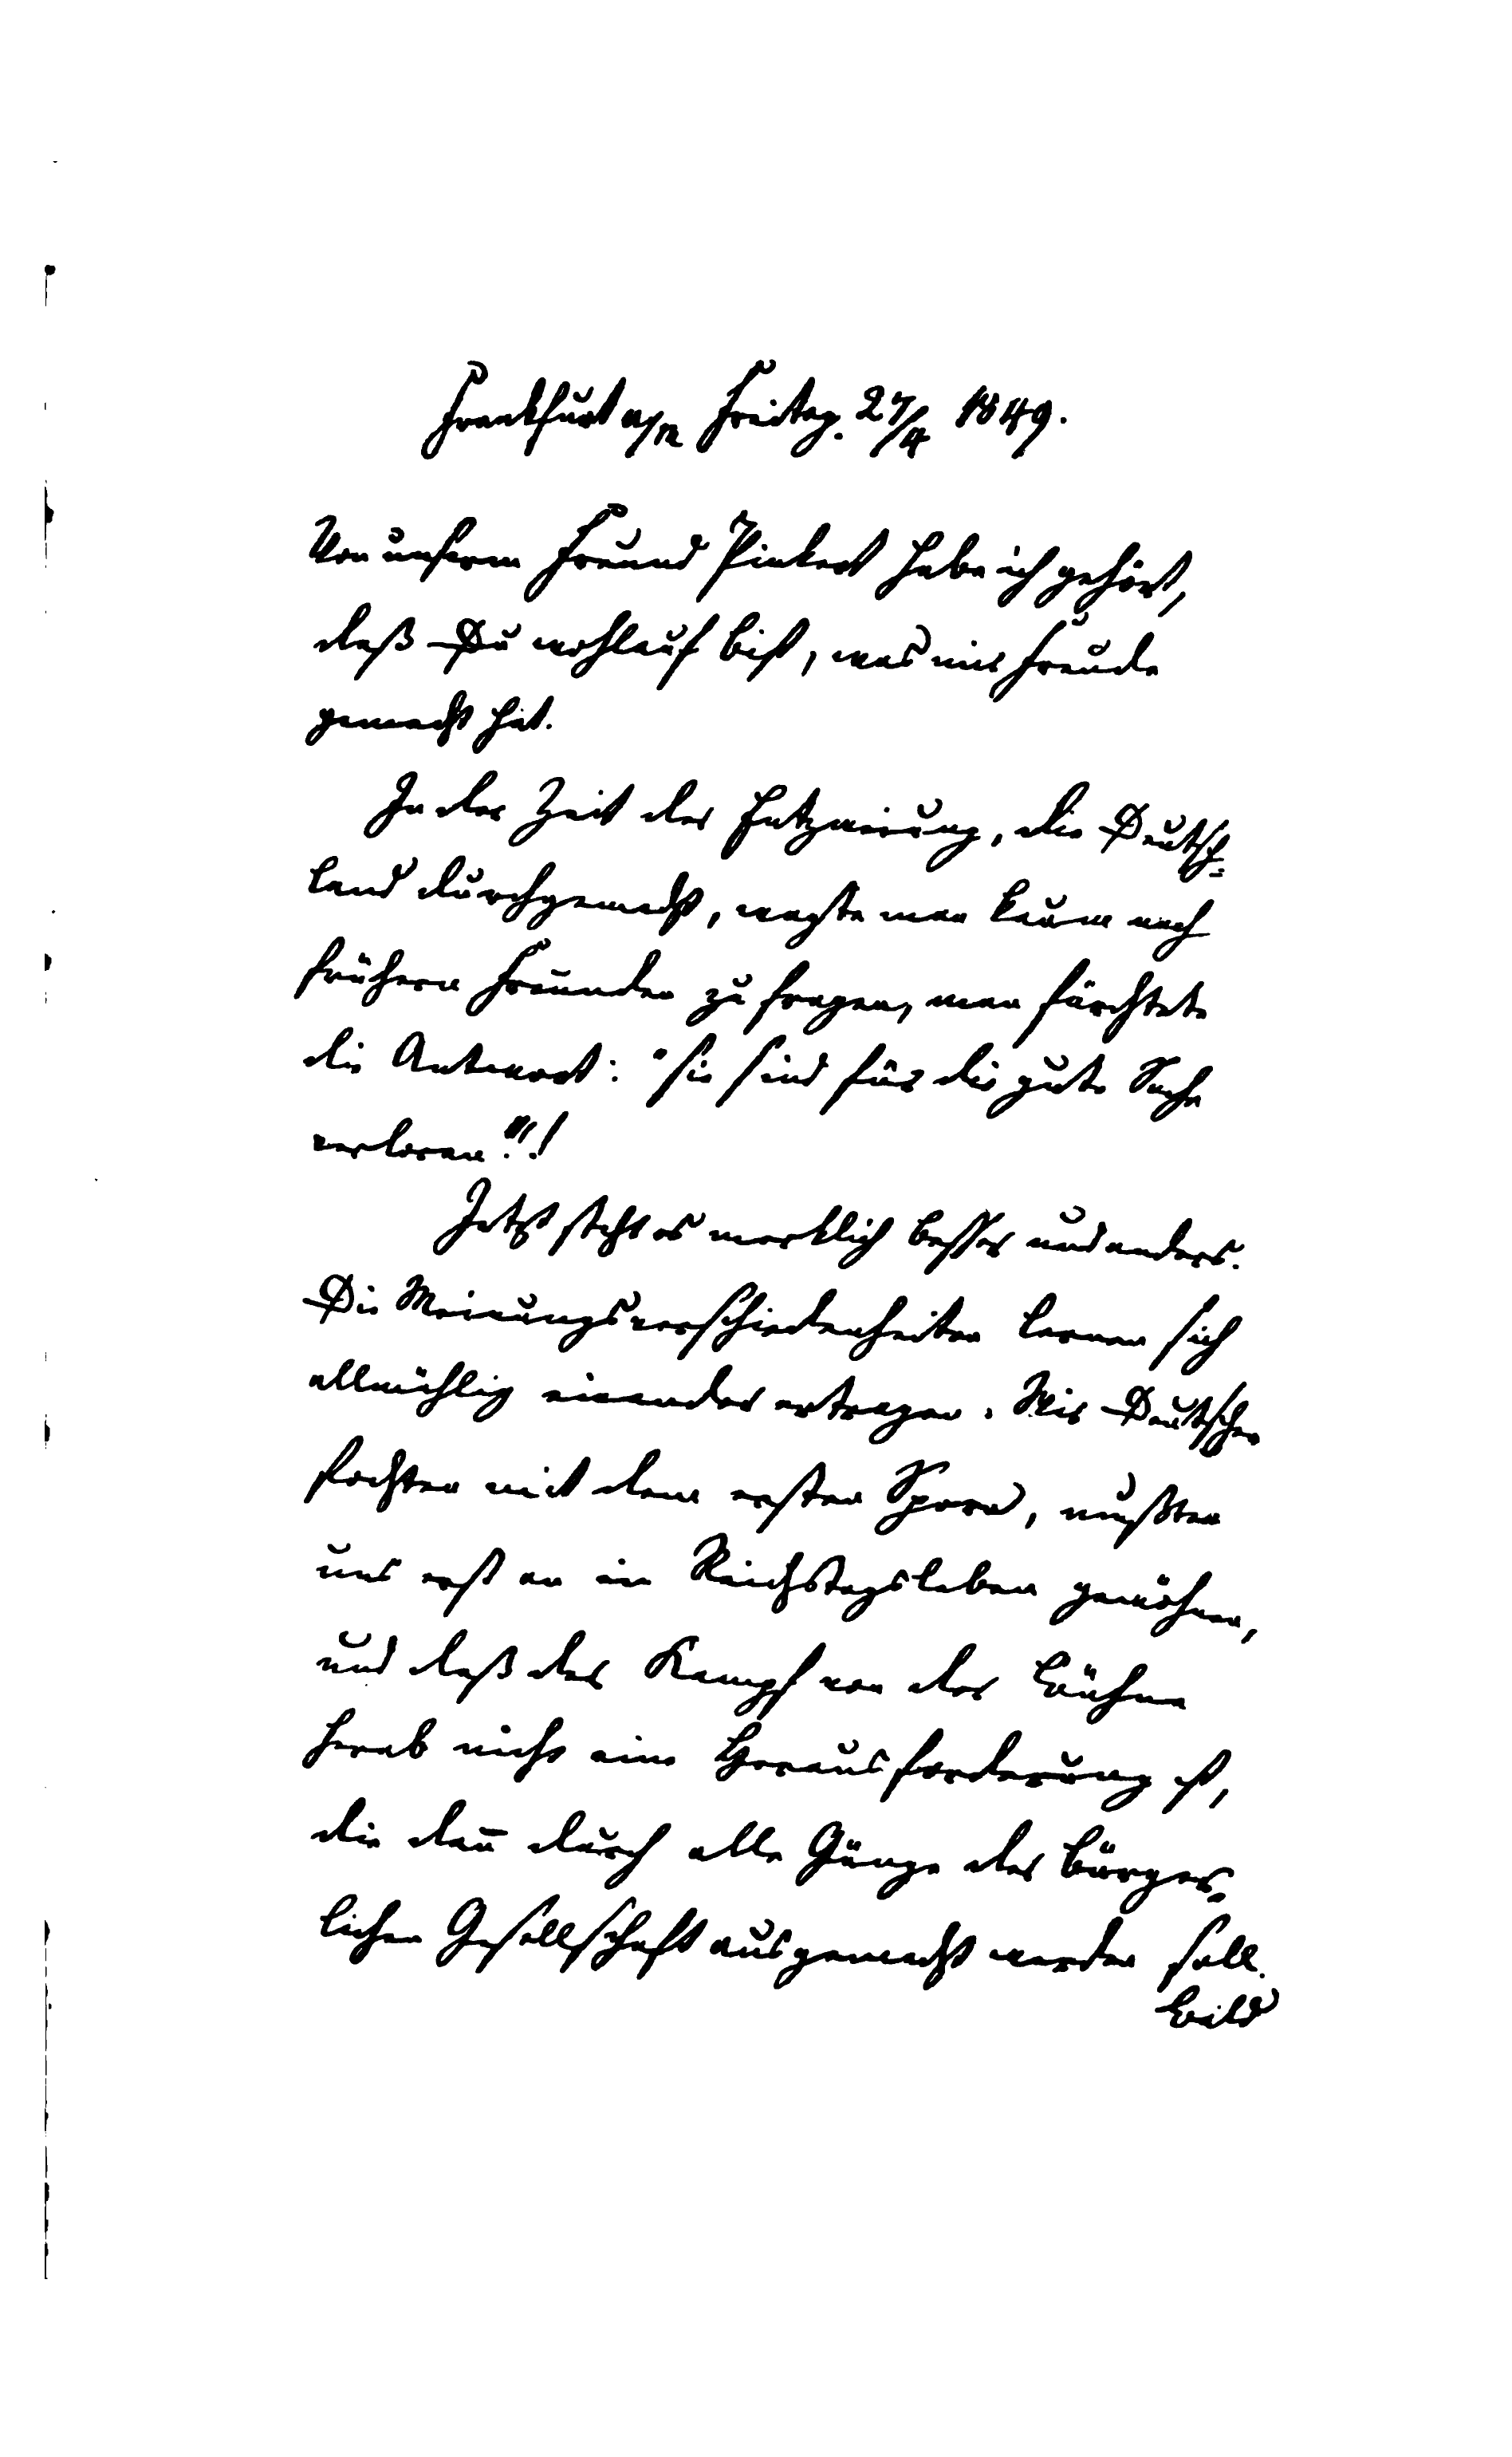 Frankfurt a/M Freitag. 27/4 1849.
Von unserm Freund Pinkert habe ich gehört,
daß Du wohlauf bist, was mir Freude
gemacht hat.
In der Zeit der Entzweiung, die Deutsch-
land durchgemacht, wagte man kaum nach
frühern Freunden zu fragen, man fürchtete
die Antwort: "sie sind für die gute Sache
verloren"!!
Jetzt steht es merklich besser und anders.
Die Meinungsverschiedenheiten lernen sich
allmählig einander ertragen. Wir Deutschen
fochten mit dem ersten Sporn, mußten
uns erst an ein Reichstagsleben gewöhnen,
und daß der Kampf von der Bühne
herab nicht eine Herausforderung ist,
die dan̄ durch alle Gänge der bürger-
lichen Gesellschaft ausgemacht werden soll.
Bild